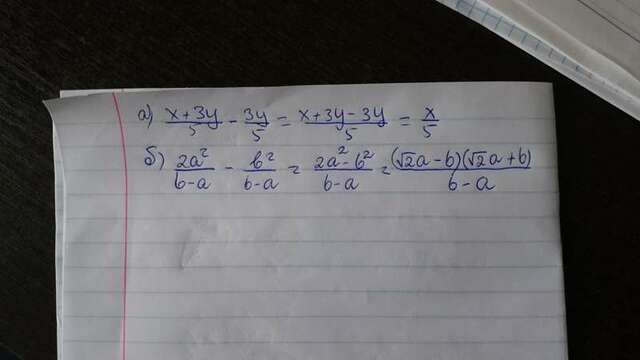 а) (x+3y)/5 - 3y/5 = (x+3y-3y)/5 = x/5
б) 2a²/(b-a) - b²/(b-a) = (2a²-b²)/(b-a) = (√2a-b)(√2a+b)/(b-a)